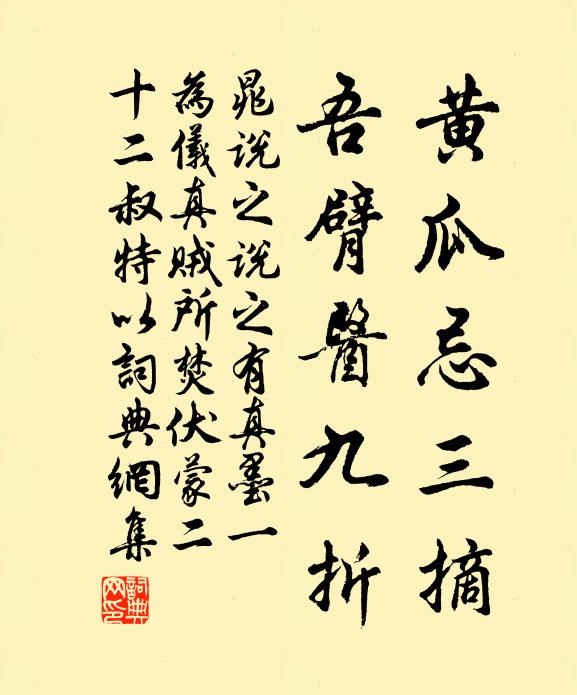 黃瓜忌三摘
吾臂醫九折
晁說之說之有真墨一
為儀真賊所焚伏蒙二
十二叔特以詞典網集
詞典網印